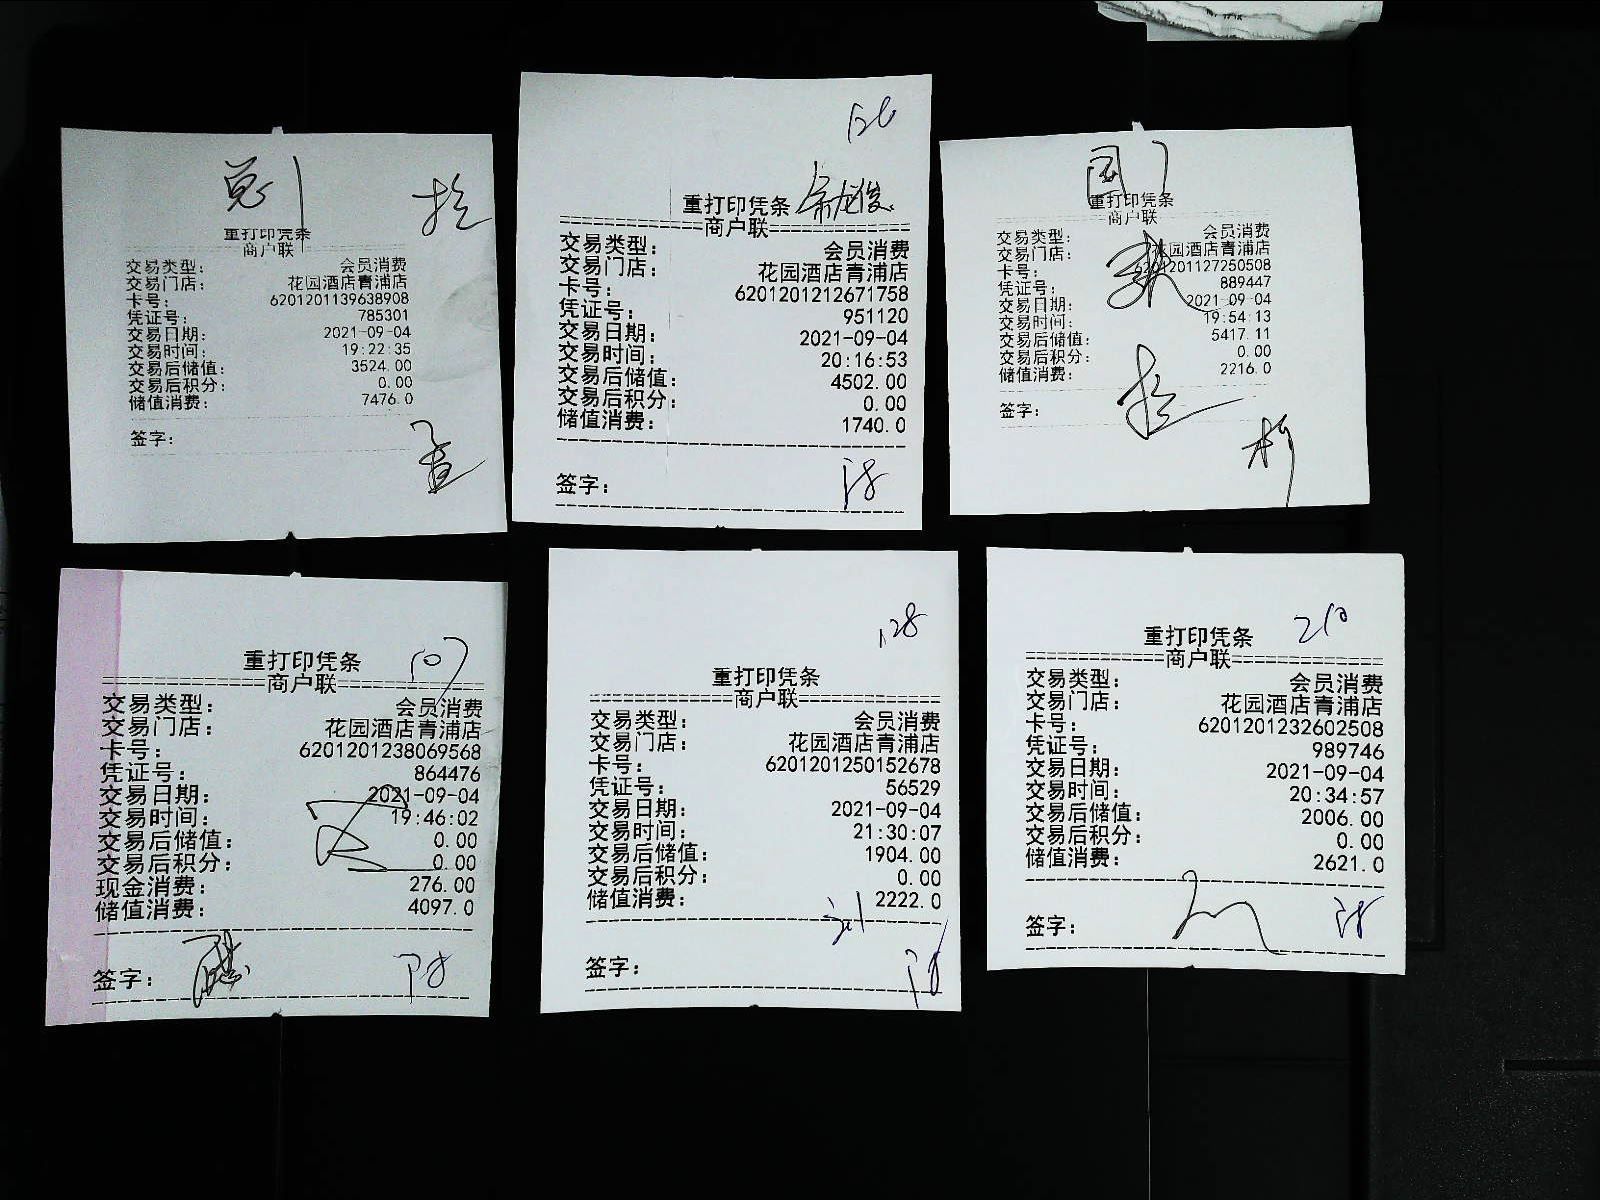 重打印凭条
商户联
交易类型： 会员消费
交易门店： 花园酒店青浦店
卡号： 6201201139638908
凭证号： 785301
交易日期： 2021-09-04
交易时间： 19:22:35
交易后储值： 3524.00
交易后积分： 0.00
储值消费： 7476.0
签字：
重打印凭条
==========商户联==========
交易类型： 会员消费
交易门店： 花园酒店青浦店
卡号： 6201201212671758
凭证号： 951120
交易日期： 2021-09-04
交易时间： 20:16:53
交易后储值： 4502.00
交易后积分： 0.00
储值消费： 1740.0
签字：
重打印凭条
商户联
交易类型： 会员消费
交易门店： 花园酒店青浦店
卡号： 6201201127250508
凭证号： 889447
交易日期： 2021-09-04
交易时间： 19:54:13
交易后储值： 5417.11
交易后积分： 0.00
储值消费： 2216.0
签字：
107
重打印凭条
==========商户联==========
交易类型： 会员消费
交易门店： 花园酒店青浦店
卡号： 6201201238069568
凭证号： 864476
交易日期： 2021-09-04
交易时间： 19:46:02
交易后储值： 0.00
交易后积分： 0.00
现金消费： 276.00
储值消费： 4097.0
签字：
128
重打印凭条
==========商户联==========
交易类型： 会员消费
交易门店： 花园酒店青浦店
卡号： 6201201250152678
凭证号： 56529
交易日期： 2021-09-04
交易时间： 21:30:07
交易后储值： 1904.00
交易后积分： 0.00
储值消费： 2222.0
签字：
210
重打印凭条
==========商户联==========
交易类型： 会员消费
交易门店： 花园酒店青浦店
卡号： 6201201232602508
凭证号： 989746
交易日期： 2021-09-04
交易时间： 20:34:57
交易后储值： 2006.00
交易后积分： 0.00
储值消费： 2621.0
签字：